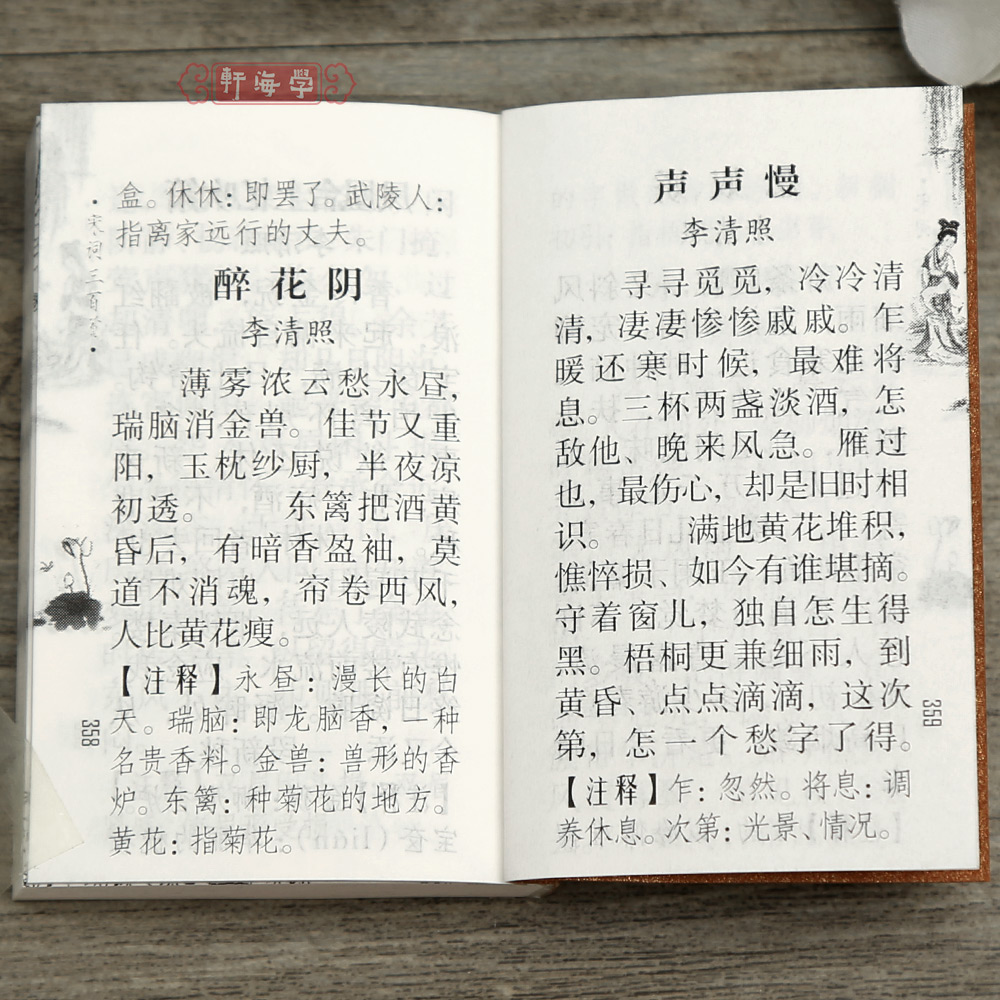 軒海学
盒。休休：即罢了。武陵人：
指离家远行的丈夫。
醉花阴
李清照
薄雾浓云愁永昼，
瑞脑消金兽。佳节又重
阳，玉枕纱厨，半夜凉
初透。 东篱把酒黄
昏后，有暗香盈袖，莫
道不消魂，帘卷西风，
人比黄花瘦。
【注释】永昼：漫长的白
天。瑞脑：即龙脑香，一种
名贵香料。金兽：兽形的香
炉。东篱：种菊花的地方。
黄花：指菊花。
·宋词三百首·
358
声声慢
李清照
寻寻觅觅，冷冷清
清，凄凄惨惨戚戚。乍
暖还寒时候，最难将
息。三杯两盏淡酒，怎
敌他、晚来风急。雁过
也，最伤心，却是旧时相
识。 满地黄花堆积，
憔悴损、如今有谁堪摘。
守着窗儿，独自怎生得
黑。梧桐更兼细雨，到
黄昏、点点滴滴，这次
第，怎一个愁字了得。
【注释】乍：忽然。将息：调
养休息。次第：光景、情况。
359